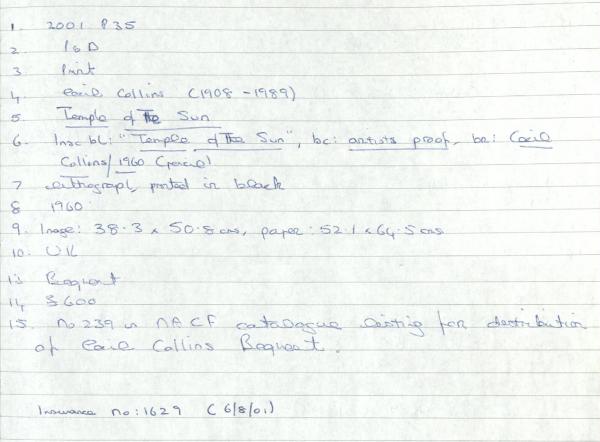 1. 2001 P35
2. I&D
3. Print
4. Cecil Collins (1908-1989)
5 Temple of The Sun
6. Insc bl: "Temple of The Sun", bc: artists proof, br: Cecil
Collins/1960 (pencil)
7 Lithograph, printed in black
8 1960
9. Image: 38.3 x 50.8 cms, paper: 52.1 x 64.5 cms
10. UK
13 Bequest
14, 600
15. no 239 in NACF catalogue listing for distribution
of Cecil Collins Bequest.
Insurance no: 1629 (6/8/01)